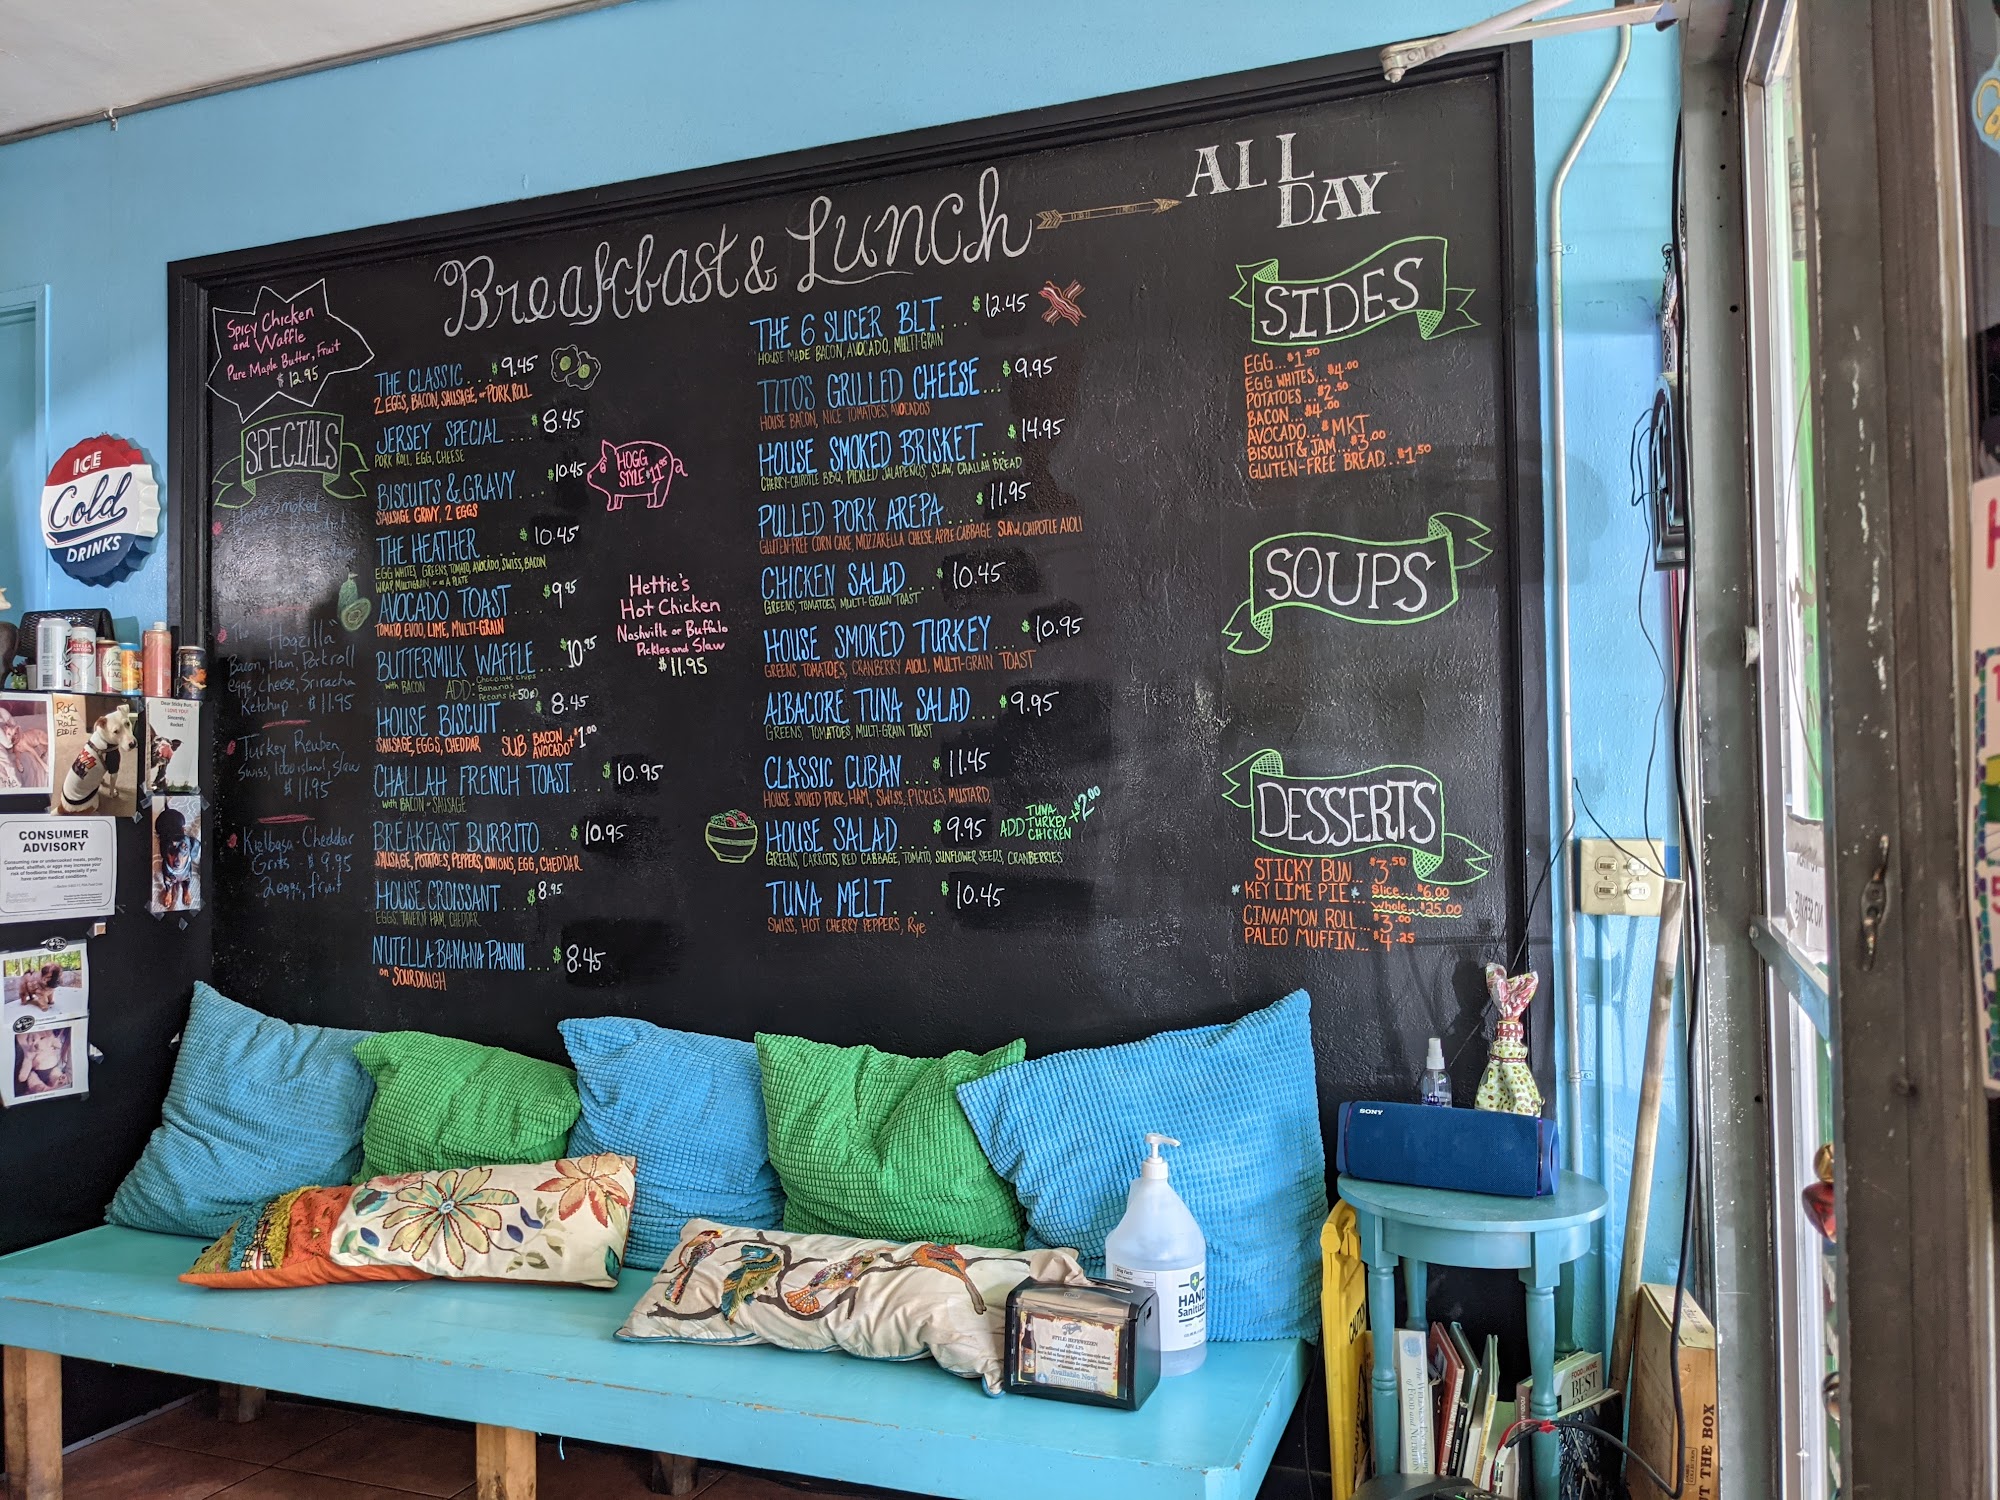 Breakfast & Lunch
ALL
DAY
Spicy Chicken
and Waffle
Pure Maple Butter, Fruit
$12.95
SPECIALS
House Smoked
Benedict
The "Hogzilla"
Bacon, Ham, Porkroll
eggs, cheese, Sriracha
Ketchup - $11.95
Turkey Reuben,
Swiss, 1000 island, Slaw
$11.95
Kielbasa-Cheddar
Grits - $9.95
2 eggs, fruit
THE CLASSIC... $9.45
2 EGGS, BACON, SAUSAGE, or PORK ROLL
JERSEY SPECIAL.... $8.45
PORK ROLL, EGG, CHEESE
BISCUITS & GRAVY... $10.45
SAUSAGE GRAVY, 2 EGGS
HOGG
STYLE $11.95
THE HEATHER.... $10.45
EGG WHITES, GREENS, TOMATO, AVOCADO, SWISS, BACON
WRAP, MULTIGRAIN, or as A PLATE
AVOCADO TOAST.... $9.95
TOMATO, EVOO, LIME, MULTI-GRAIN
BUTTERMILK WAFFLE... $10.95
with BACON ADD: Chocolate Chips
Bananas
Pecans (+50¢)
HOUSE BISCUIT..... $8.45
SAUSAGE, EGGS, CHEDDAR SUB BACON
AVOCADO +$1.00
CHALLAH FRENCH TOAST... $10.95
with BACON or SAUSAGE
BREAKFAST BURRITO... $10.95
SAUSAGE, POTATOES, PEPPERS, ONIONS, EGG, CHEDDAR
HOUSE CROISSANT.... $8.95
EGGS, TAVERN HAM, CHEDDAR
NUTELLA BANANA PANINI... $8.45
on SOURDOUGH
Hettie's
Hot Chicken
Nashville or Buffalo
Pickles and Slaw
$11.95
THE 6 SLICER BLT.... $12.45
HOUSE MADE BACON, AVOCADO, MULTI-GRAIN
TITO'S GRILLED CHEESE... $9.95
HOUSE BACON, NICE TOMATOES, AVOCADOS
HOUSE SMOKED BRISKET... $14.95
CHERRY-CHIPOTLE BBQ, PICKLED JALAPEÑOS, SLAW, CHALLAH BREAD
PULLED PORK AREPA.... $11.95
GLUTEN-FREE CORN CAKE, MOZZARELLA CHEESE, APPLE CABBAGE SLAW, CHIPOTLE AIOLI
CHICKEN SALAD... $10.45
GREENS, TOMATOES, MULTI-GRAIN TOAST
HOUSE SMOKED TURKEY.... $10.95
GREENS, TOMATOES, CRANBERRY AIOLI, MULTI-GRAIN TOAST
ALBACORE TUNA SALAD... $9.95
GREENS, TOMATOES, MULTI-GRAIN TOAST
CLASSIC CUBAN... $11.45
HOUSE SMOKED PORK, HAM, SWISS, PICKLES, MUSTARD,
HOUSE SALAD... $9.95 ADD TUNA
TURKEY
CHICKEN +$2.00
GREENS, CARROTS, RED CABBAGE, TOMATO, SUNFLOWER SEEDS, CRANBERRIES
TUNA MELT.... $10.45
SWISS, HOT CHERRY PEPPERS, Rye
SIDES
EGG...$1.50
EGG WHITES...$4.00
POTATOES...$2.50
BACON...$4.00
AVOCADO...$MKT
BISCUIT & JAM...$3.00
GLUTEN-FREE BREAD...$1.50
SOUPS
DESSERTS
STICKY BUN...$3.50
KEY LIME PIE Slice....$6.00
Whole...$25.00
CINNAMON ROLL...$3.00
PALEO MUFFIN...$4.25
ICE
Cold
DRINKS
ROCK
n
ROLL
EDDIE
Dear Sticky Bun,
I LOVE YOU!
Sincerely,
Rocket
CONSUMER
ADVISORY
Consuming raw or undercooked meats, poultry,
seafood, shellfish, or eggs may increase your
risk of foodborne illness, especially if you
have certain medical conditions.
SONY
HAND
Sanitizer
STYLE: HEFEWEIZEN
Available Now!
FOOD & WINE
BEST
OUT THE BOX